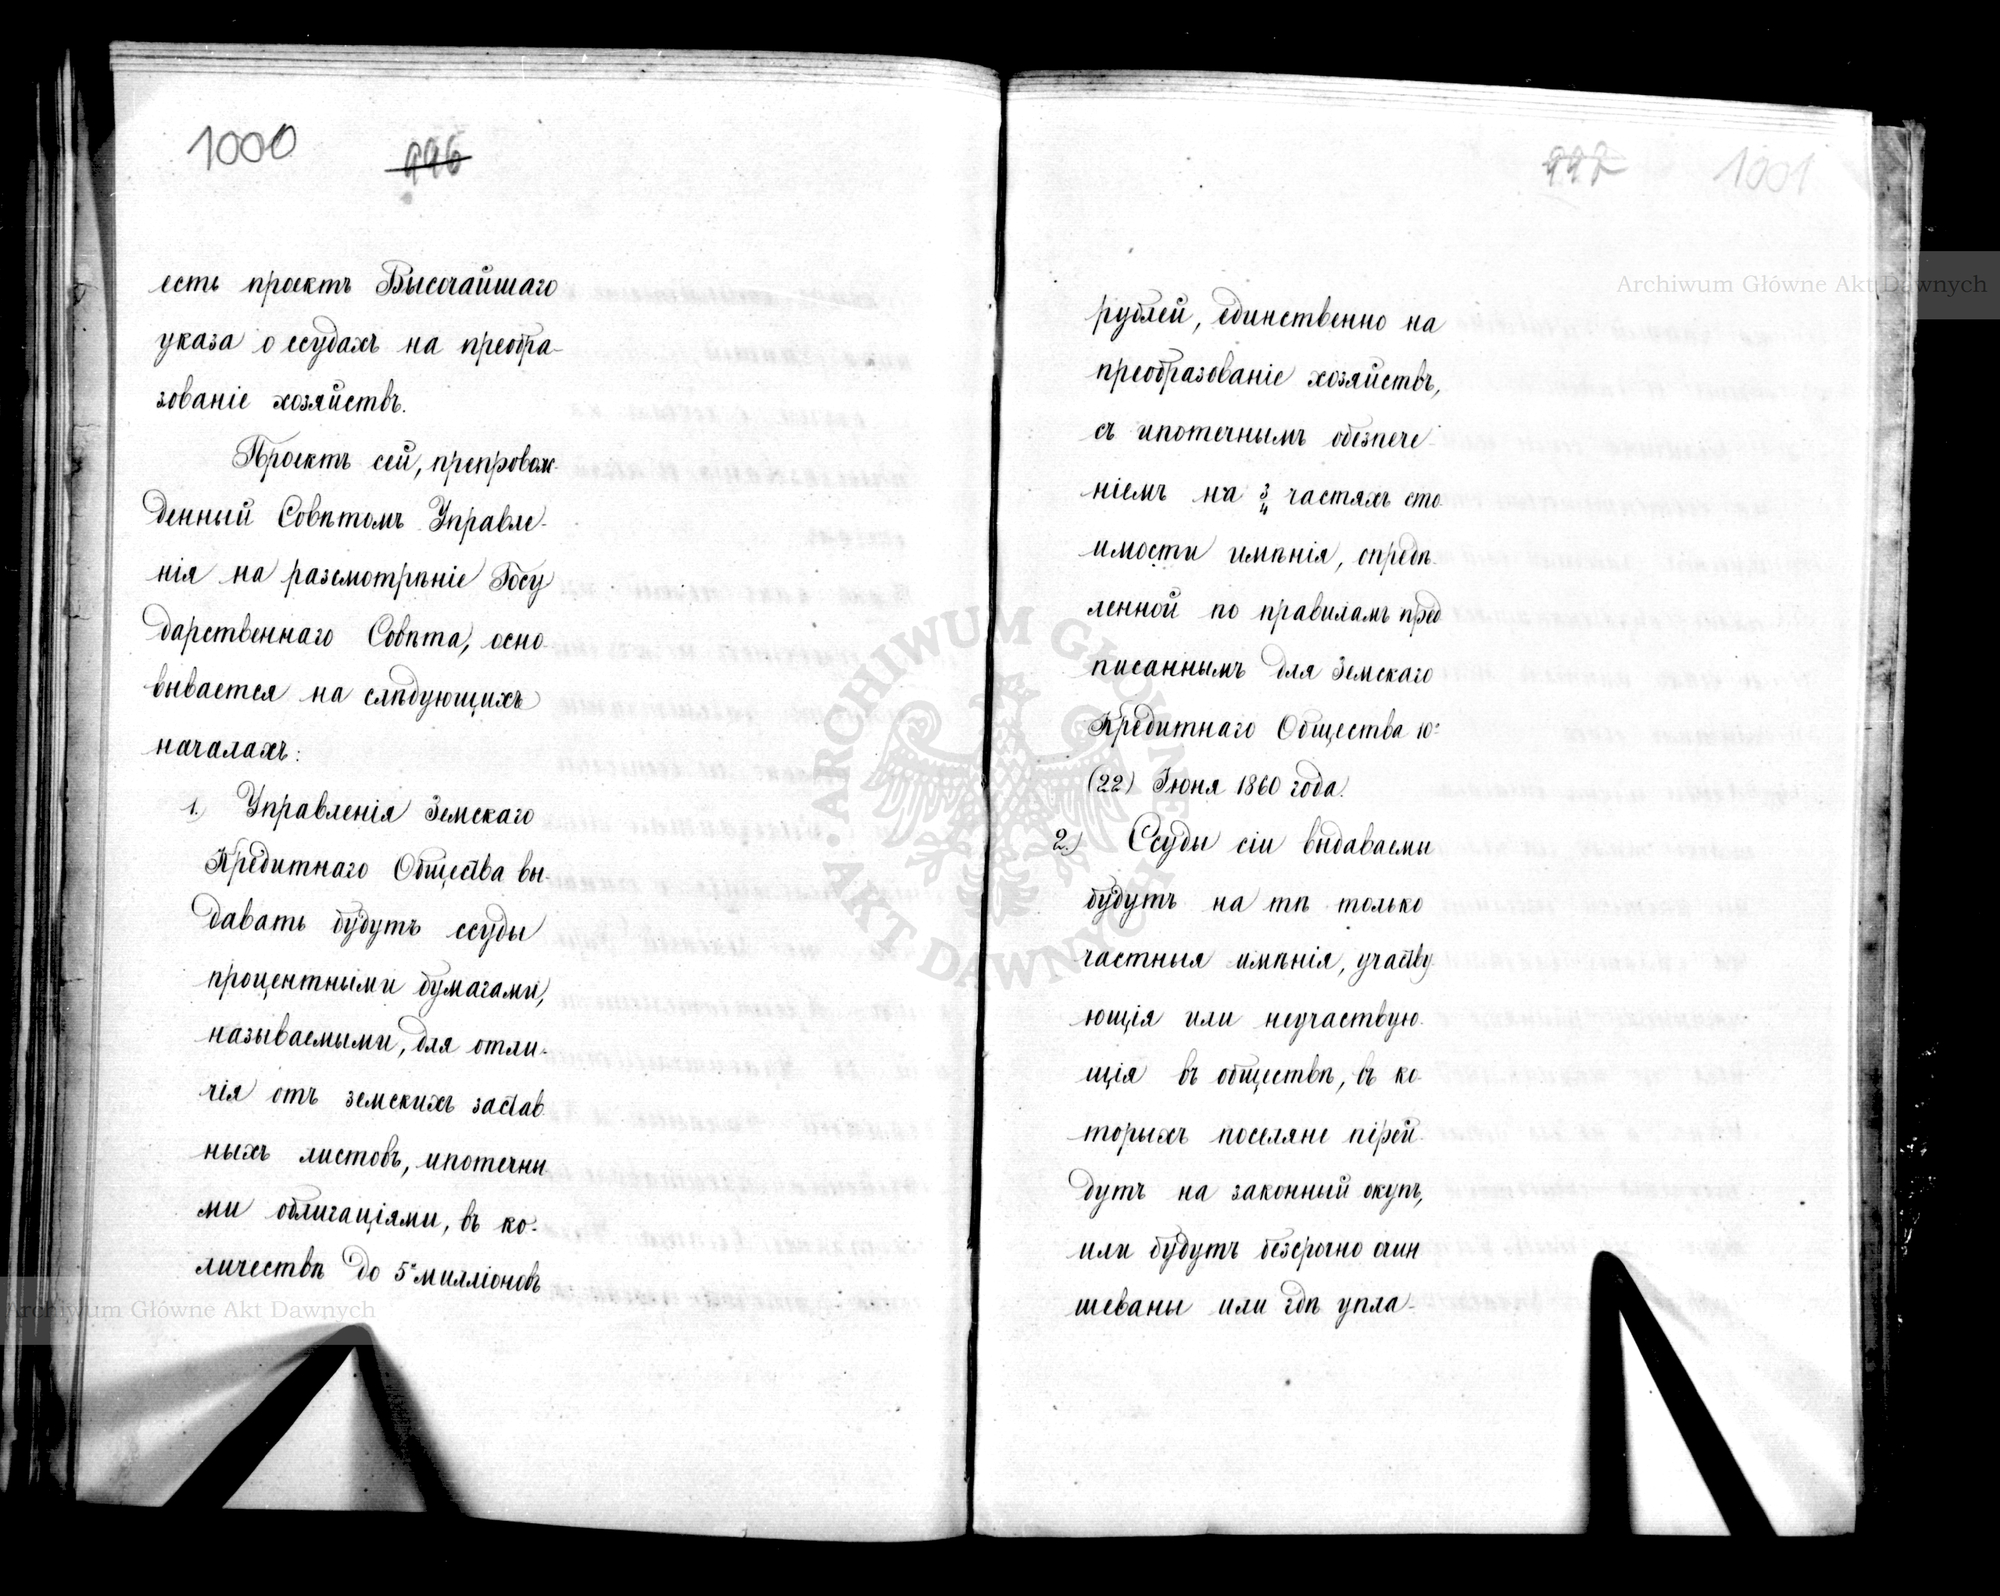 1000 996
есть проектъ Высочайшаго
указа о ссудахъ на преобра-
зованіе хозяйствъ.
Проектъ сей, препровож-
денный Совѣтомъ Управле-
нія на разсмотрѣніе Госу
дарственнаго Совѣта, осно-
вывается на слѣдующихъ
началахъ:
1.) Управленія Земскаго
Кредитнаго Общества вы-
давать будутъ ссуды
процентными бумагами,
называемыми, для отли-
чія отъ земскихъ застав
ныхъ листовъ, ипотечны
ми облигаціями, въ ко-
личествѣ до 5и милліоновъ
997 1001
рублей, единственно на
преобразованіе хозяйствъ,
съ ипотечнымъ обезпече-
ніемъ на 3/4 частяхъ сто-
имости имѣнія, опредѣ-
ленной по правиламъ пред
писаннымъ для Земскаго
Кредитнаго Общества 10
(22) Іюня 1860 года.
2.) Ссуды сіи выдаваемы
будутъ на тѣ только
частныя имѣнія, участву
ющія или неучаствую-
щія въ обществѣ, въ ко-
торыхъ поселяне перей-
дутъ на законный окупъ,
или будутъ безсрочно очин
шеваны или гдѣ упла-
Archiwum Główne Akt Dawnych
Archiwum Główne Akt Dawnych
ARCHIWUM GŁÓWNE AKT DAWNYCH